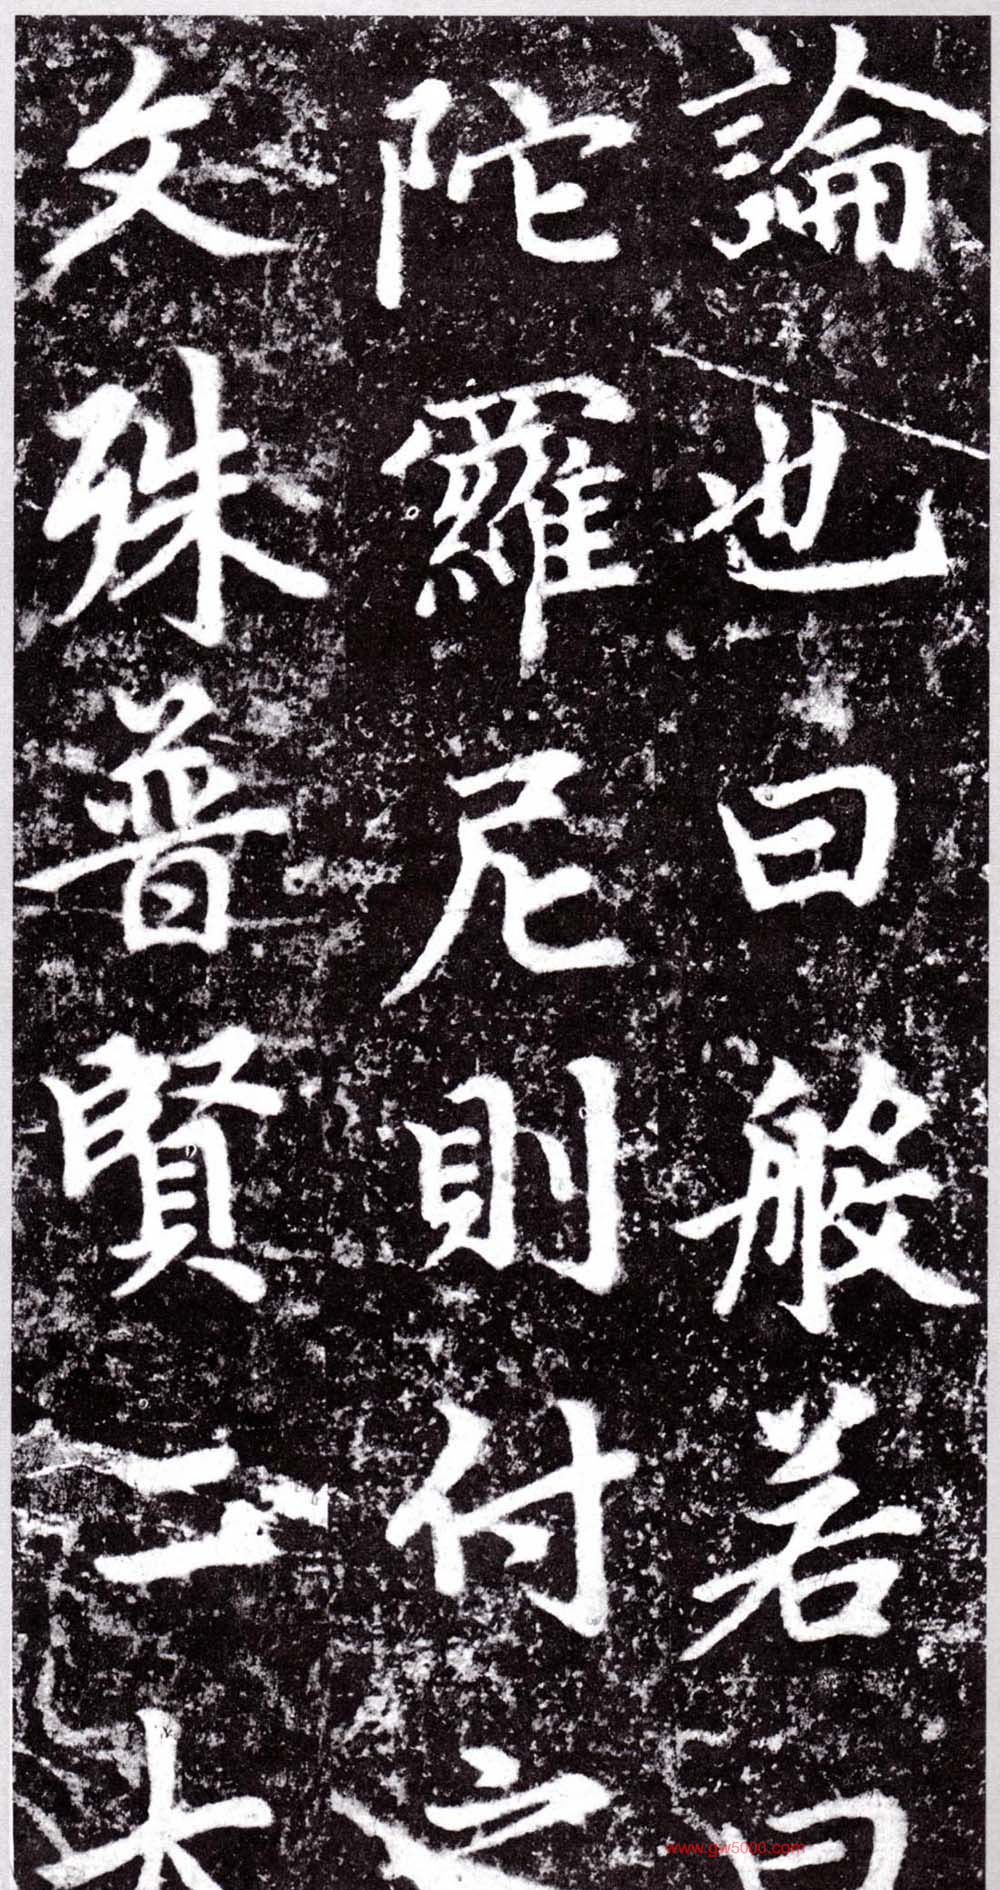 論也曰般若曰
陀羅尼則付之
文殊普賢二大
www.gw5000.com